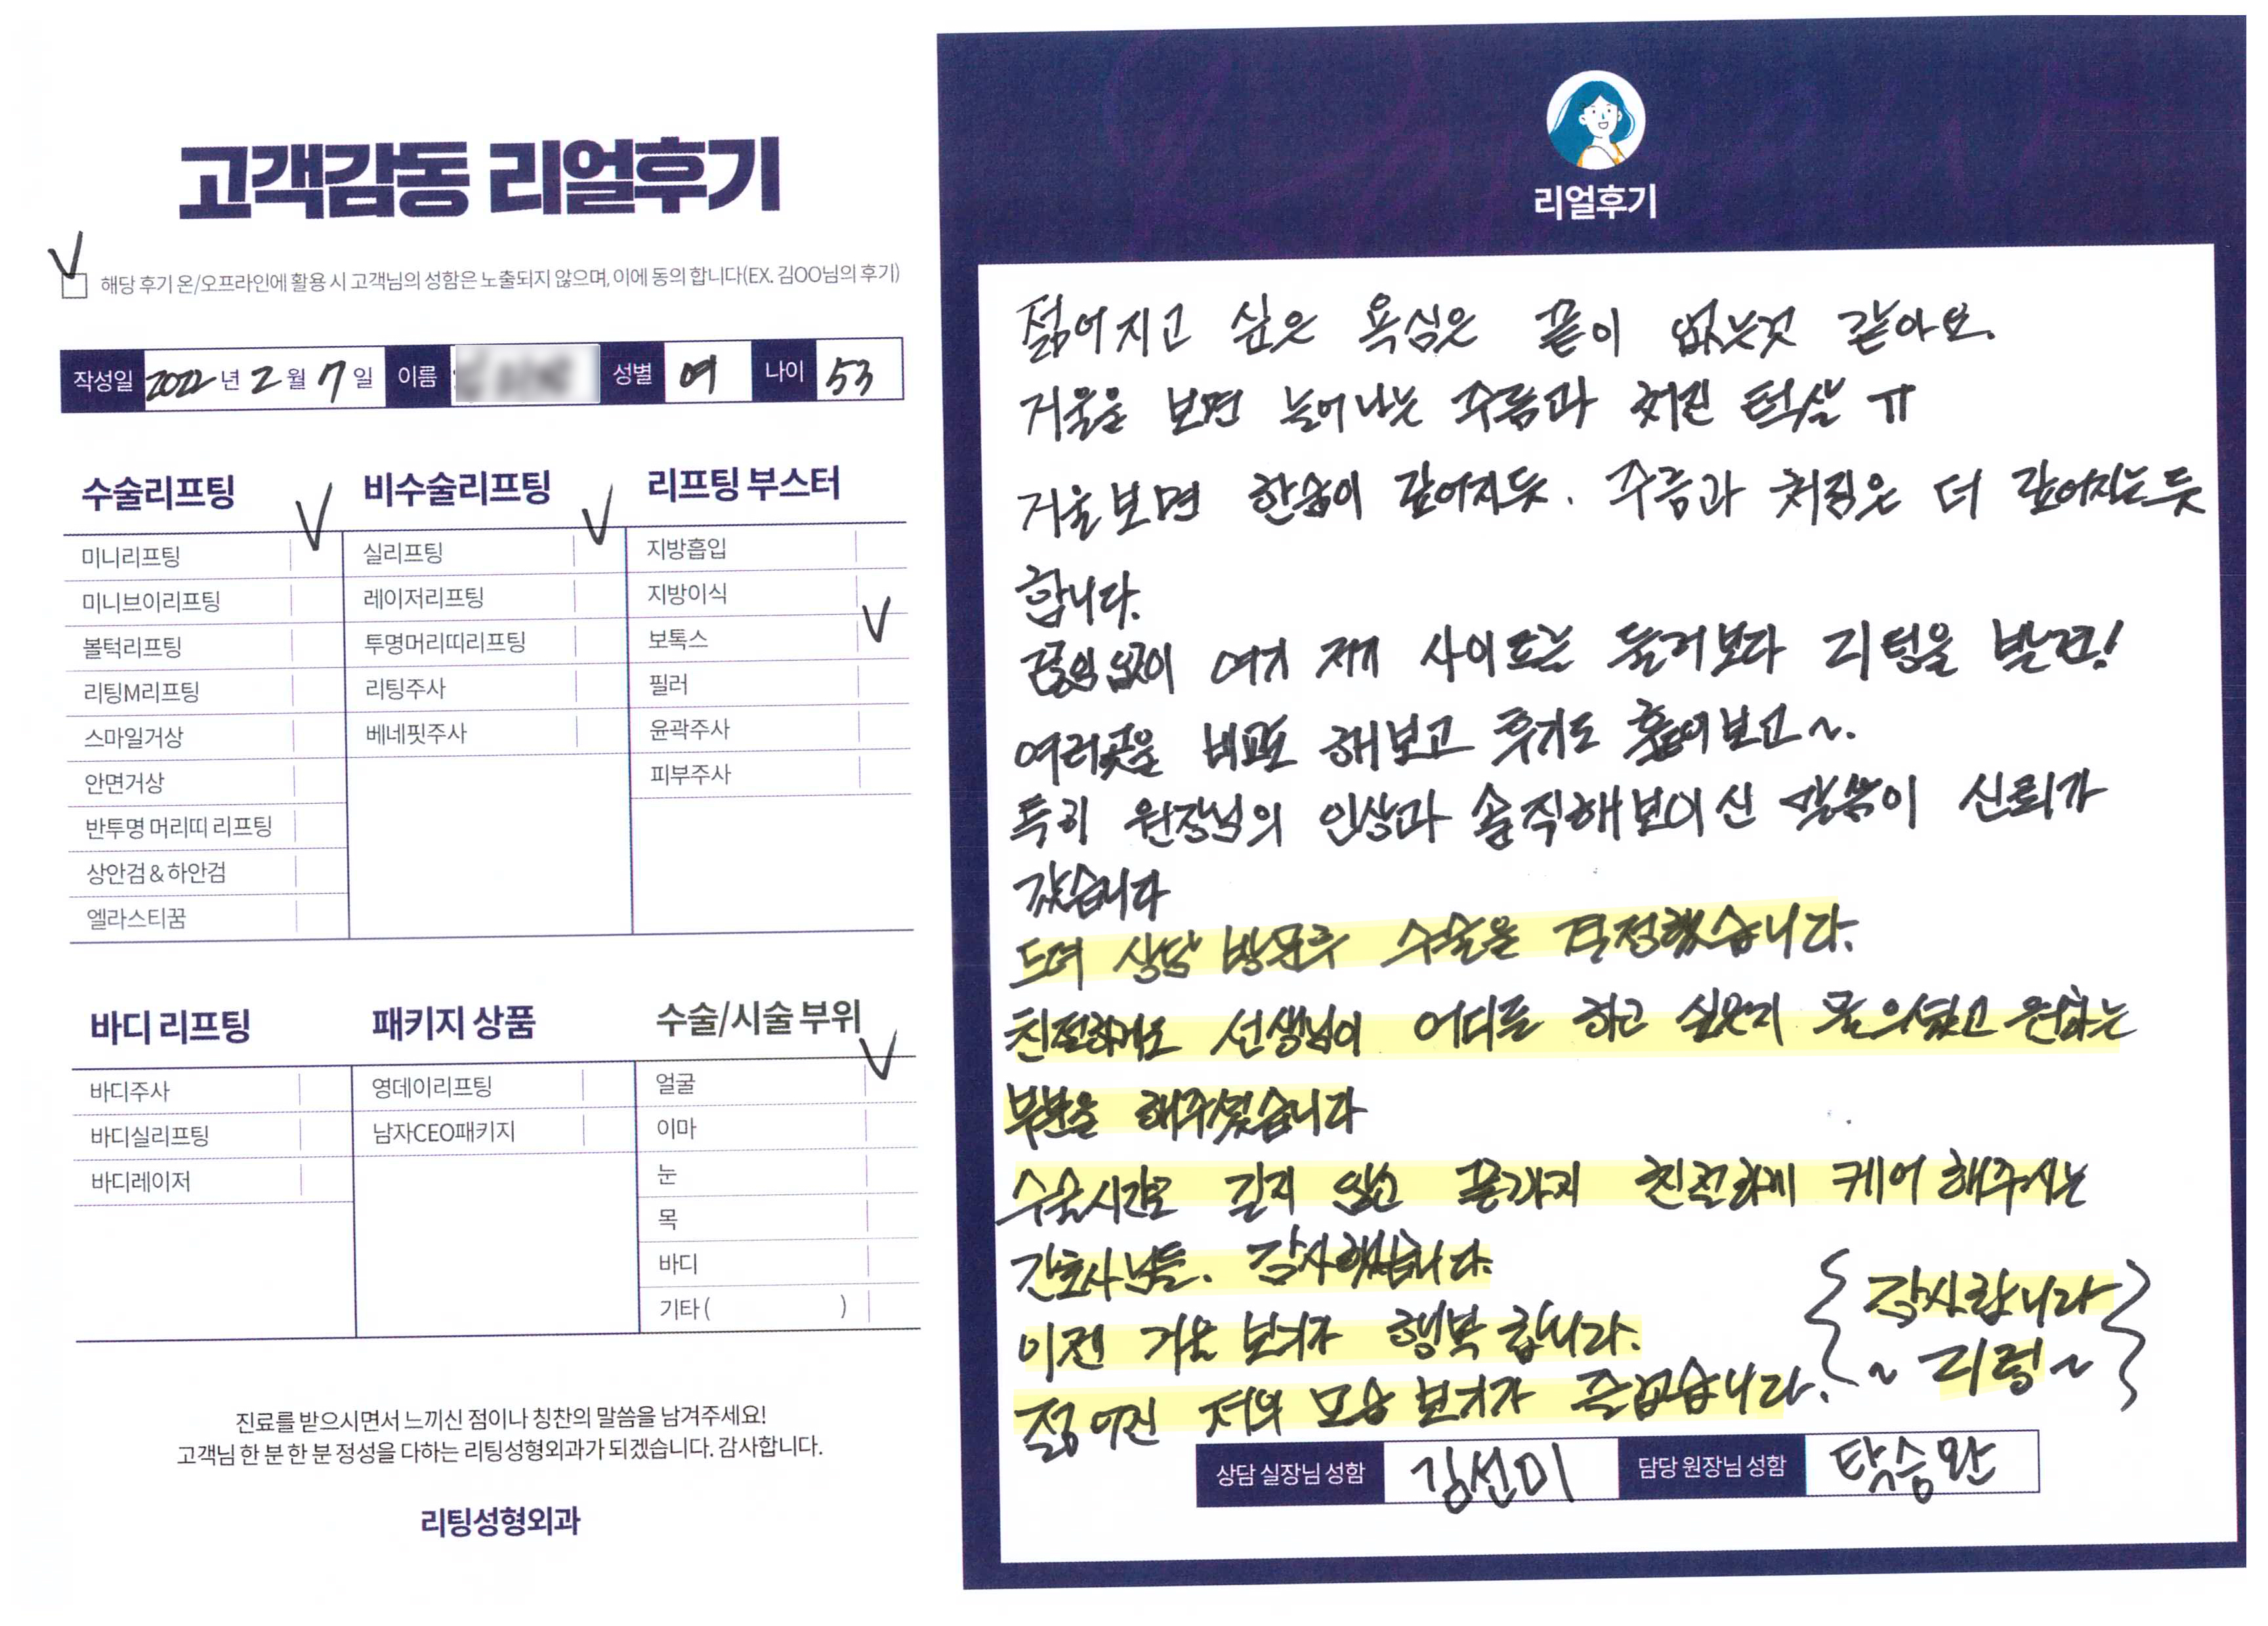 고객감동 리얼후기
해당 후기 온/오프라인에 활용 시 고객님의 성함은 노출되지 않으며, 이에 동의 합니다(EX. 김OO님의 후기)
작성일 2022년 2월 7일 이름 성별 여 나이 53
수술리프팅
미니리프팅
미니브이리프팅
볼턱리프팅
리팅M리프팅
스마일거상
안면거상
반투명 머리띠 리프팅
상안검 & 하안검
엘라스티꿈
비수술리프팅
실리프팅
레이저리프팅
투명머리띠리프팅
리팅주사
베네핏주사
리프팅 부스터
지방흡입
지방이식
보톡스
필러
윤곽주사
피부주사
바디 리프팅
바디주사
바디실리프팅
바디레이저
패키지 상품
영데이리프팅
남자CEO패키지
수술/시술 부위
얼굴
이마
눈
목
바디
기타 ( )
진료를 받으시면서 느끼신 점이나 칭찬의 말씀을 남겨주세요!
고객님 한 분 한 분 정성을 다하는 리팅성형외과가 되겠습니다. 감사합니다.
리팅성형외과
리얼후기
젊어지고 싶은 욕심은 끝이 없는것 같아요.
거울을 보면 늘어나는 주름과 처진 턱살 ㅠ
거울보면 한숨이 깊어지듯. 주름과 처짐은 더 깊어지는듯
합니다.
끊임없이 여기 저기 사이트를 둘러보다 리팅을 발견!
여러곳을 비교도 해보고 후기도 훑어보고~.
특히 원장님의 인상과 솔직해보이신 말씀이 신뢰가
갔습니다
드뎌 상담 방문후 수술을 결정했습니다.
친절하게도 선생님이 어디를 하고 싶은지 물으셨고 원하는
부분을 해주셨습니다
수술시간도 길지 않고 끝까지 친절하게 케어 해주시는
간호사님들. 감사했습니다.
이젠 거울 보기가 행복합니다.
젊어진 저의 모습 보기가 즐겁습니다.
감사합니다
~ 리팅 ~
상담 실장님 성함 김선미 담당 원장님 성함 탁승완